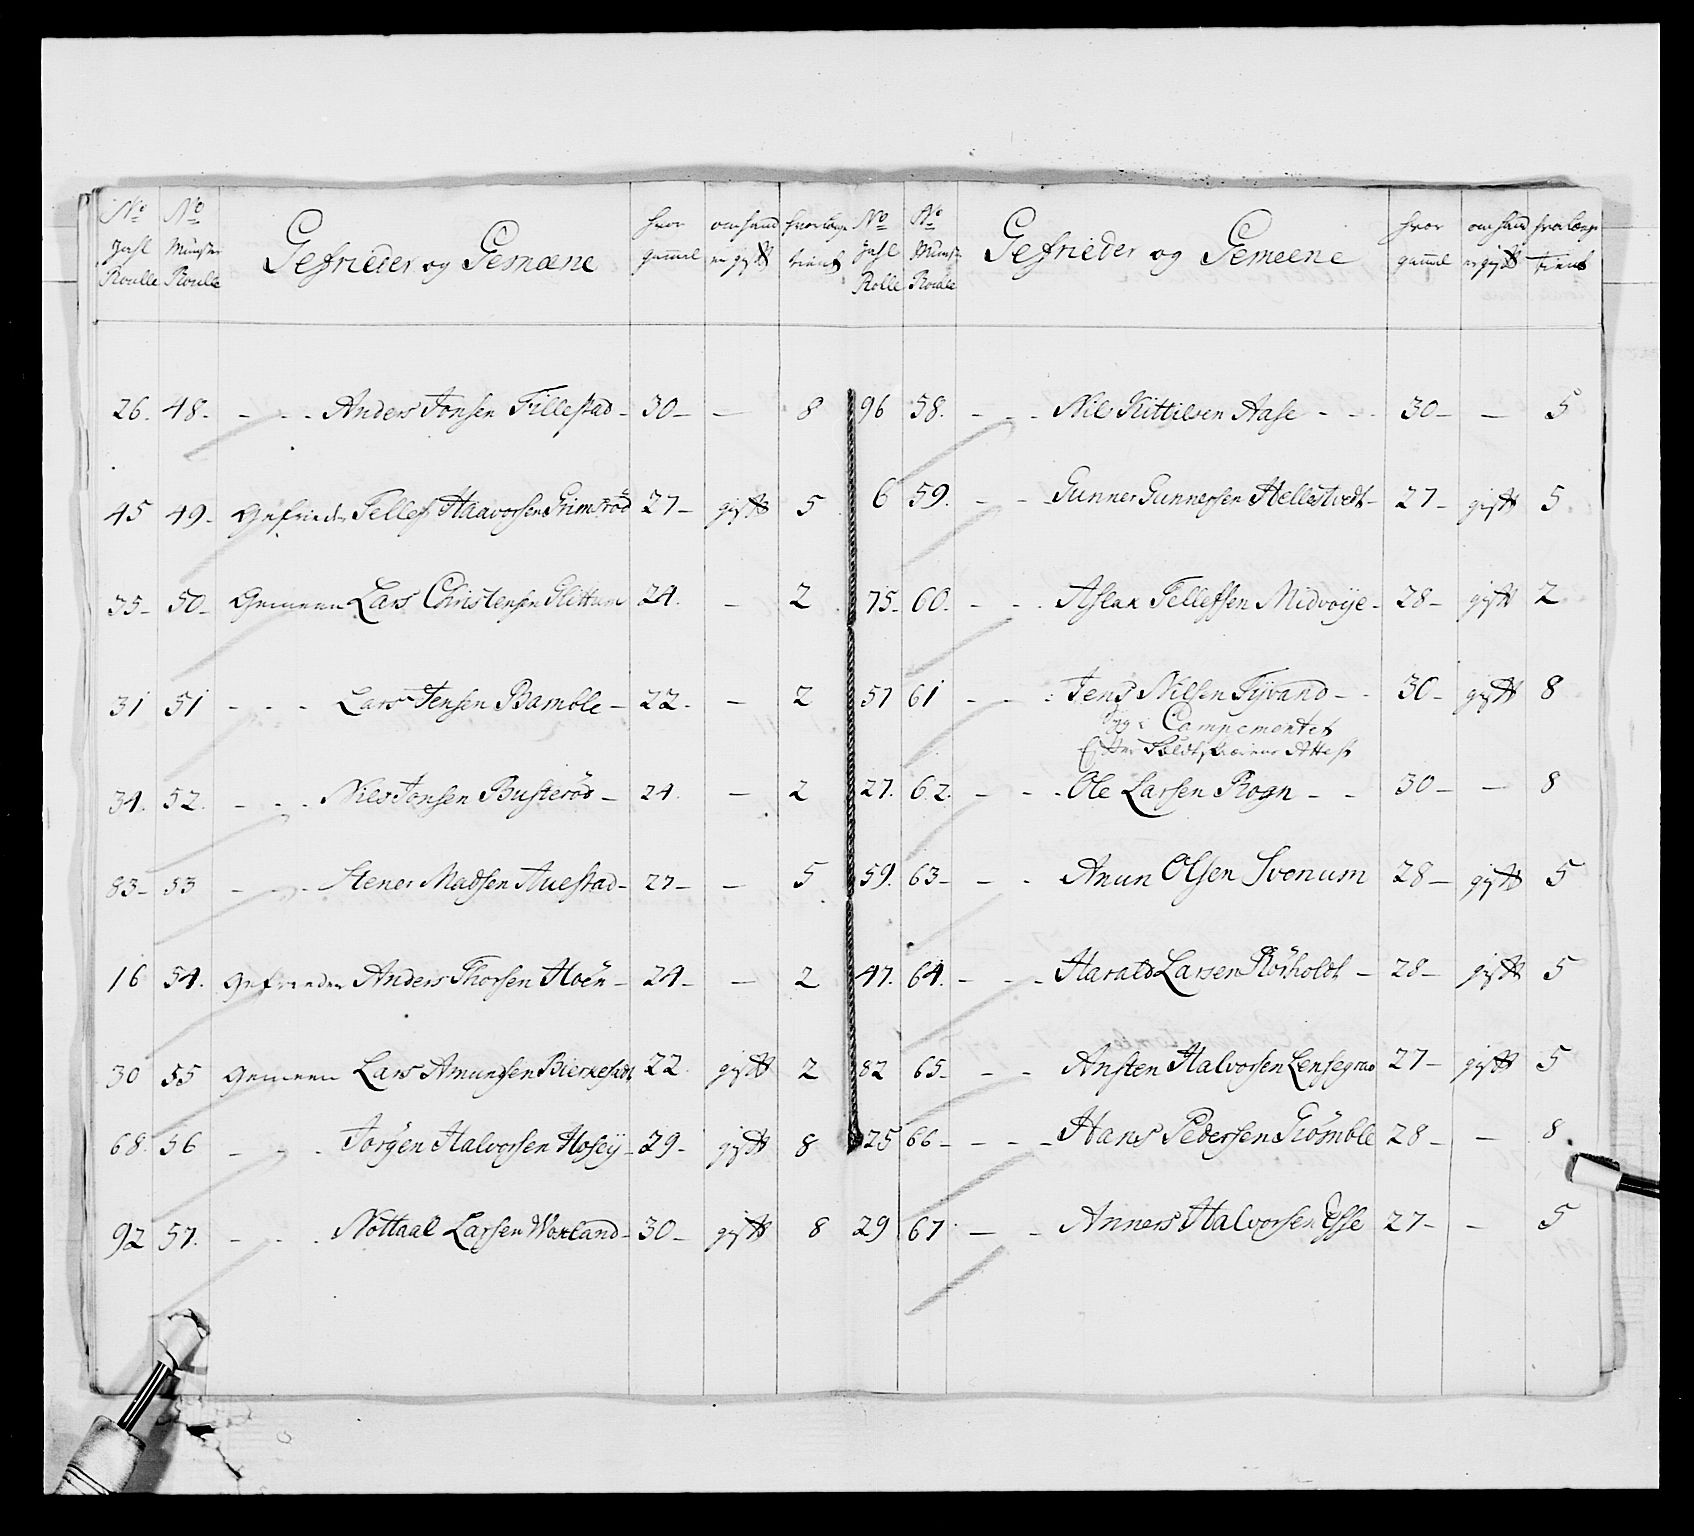 No Jahl Roulle | No Münster Roulle | Gefrieder og Gemæne | hvor gammel | om hand er gift | hvor længe tient
26. 48. - - - Anders Jonsen Fillestad - 30 - - 8
45 49. Gefrieder Tellef Haavorsen Grimsröd 27 - gift 5
35 - 50 - Gemeen Lars Christensen Glittum 24. - 2
31 51 - - - Lars Jensen Bamble - 22. - 2
34. 52. - - - Nils Jonsen Busteröd - 24. - 2
83 - 53 - - - Stener Madsen Auestad - 27 - - 5
16 54. Gefrieder Anders Thorsen Hoën - 24 - - 2
30 55 Gemeen Lars Amundsen Bierkesdt 22. gift 2
68. 56 - - - Jörgen Halvorsen Hosey - 29 - gift 8
92 57. - - - Nottaal Larsen Woxland - 30 - gift 8
No Jahl Rolle | No Münster Roulle | Gefrieder og Gemeene | hvor gammel | om hand er gift | hvor længe tient
96 58. - - - Nils Kittilsen Aase - - 30 - - 5
6 59. - - Gunner Gunnersen Hellestvedt - 27 - gift 5
75. 60. - - - Aslak Tellefsen Midvöye - 28 - gift 2
57 61 - - - Jens Nilsen Tyvand - - 30 - gift 8
syg i Campementet
Efter Attest
27. 62. - - - Ole Larsen Rogn - - 30 - - 8
59. 63 - - - Anun Olsen Svenum 28 - gift 5
47. 64. - - - Harald Larsen Rörholdt - 28 - gift 5
82 65 - - - Ansten Halvorsen 27 - gift 5
25 66 - - - - Hans Pedersen Trömble 28 - - 8.
29 67. - - Anners Halvorsen Esse 27 - - 5